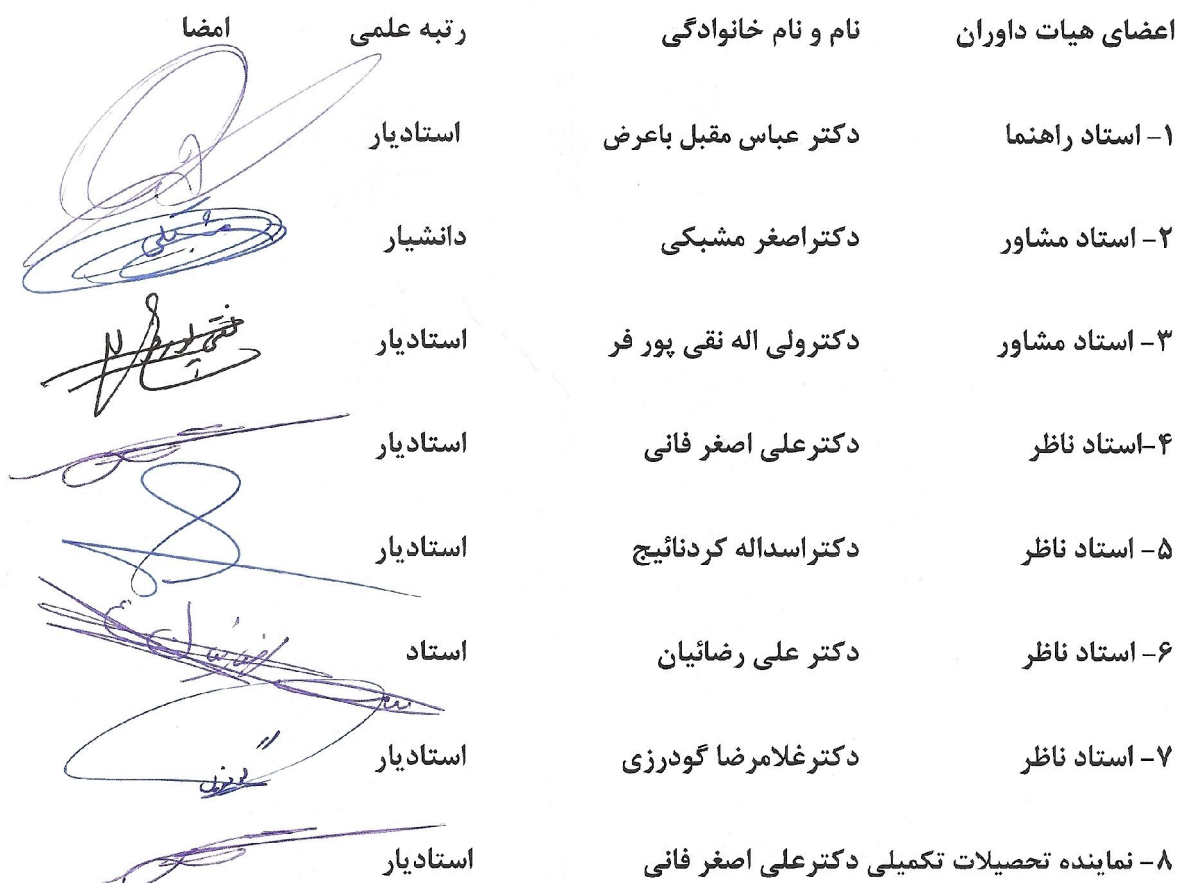 اعضای هیات داوران نام و نام خانوادگی رتبه علمی امضا
۱- استاد راهنما دکتر عباس مقبل باعرض استادیار
۲- استاد مشاور دکتراصغر مشبکی دانشیار
مشبکی
۳- استاد مشاور دکترولی اله نقی پور فر استادیار
۴-استاد ناظر دکترعلی اصغر فانی استادیار
۵- استاد ناظر دکتراسداله کردنائیج استادیار
۶- استاد ناظر دکتر علی رضائیان استاد
۷- استاد ناظر دکترغلامرضا گودرزی استادیار
۸- نماینده تحصیلات تکمیلی دکترعلی اصغر فانی استادیار